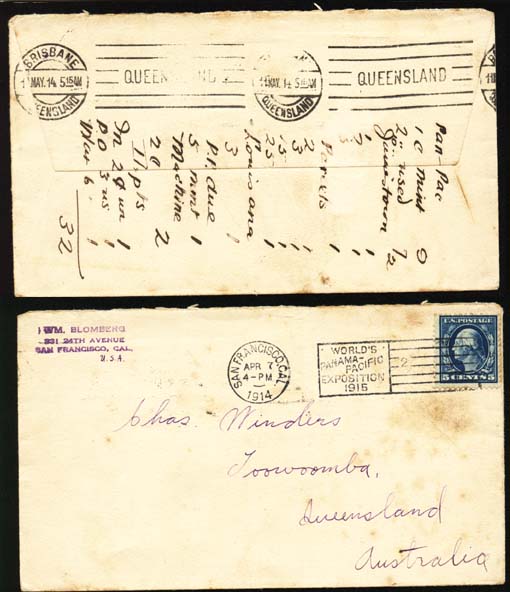 BRISBANE
MAY. 14 5 15AM
QUEENSLAND
QUEENSLAND
MAY. 14 5 15AM
QUEENSLAND
QUEENSLAND
Pan-Pac
1c mint 0
2" used 7
Jamestown 2
Louisiana
3 1
P. due
5 mint 1
Machine 2
20
32
WM. BLOMBERG
331 24TH AVENUE
SAN FRANCISCO, CAL.
U.S.A.
SAN FRANCISCO, CAL.
APR 7
4-PM
1914
WORLD'S
PANAMA-PACIFIC
EXPOSITION
1915
2
U.S. POSTAGE
5 CENTS 5
Chas. Winders
Toowoomba,
Queensland
Australia